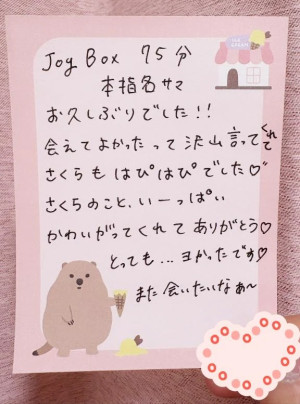 Joy Box 75分
本指名サマ
お久しぶりでした!!
会えてよかったって沢山言ってくれて
さくらもはぴはぴでした♡
さくらのこと、いーっぱい
かわいがってくれてありがとう♡
とっても...ヨかったです♡
また会いたいなぁ〜